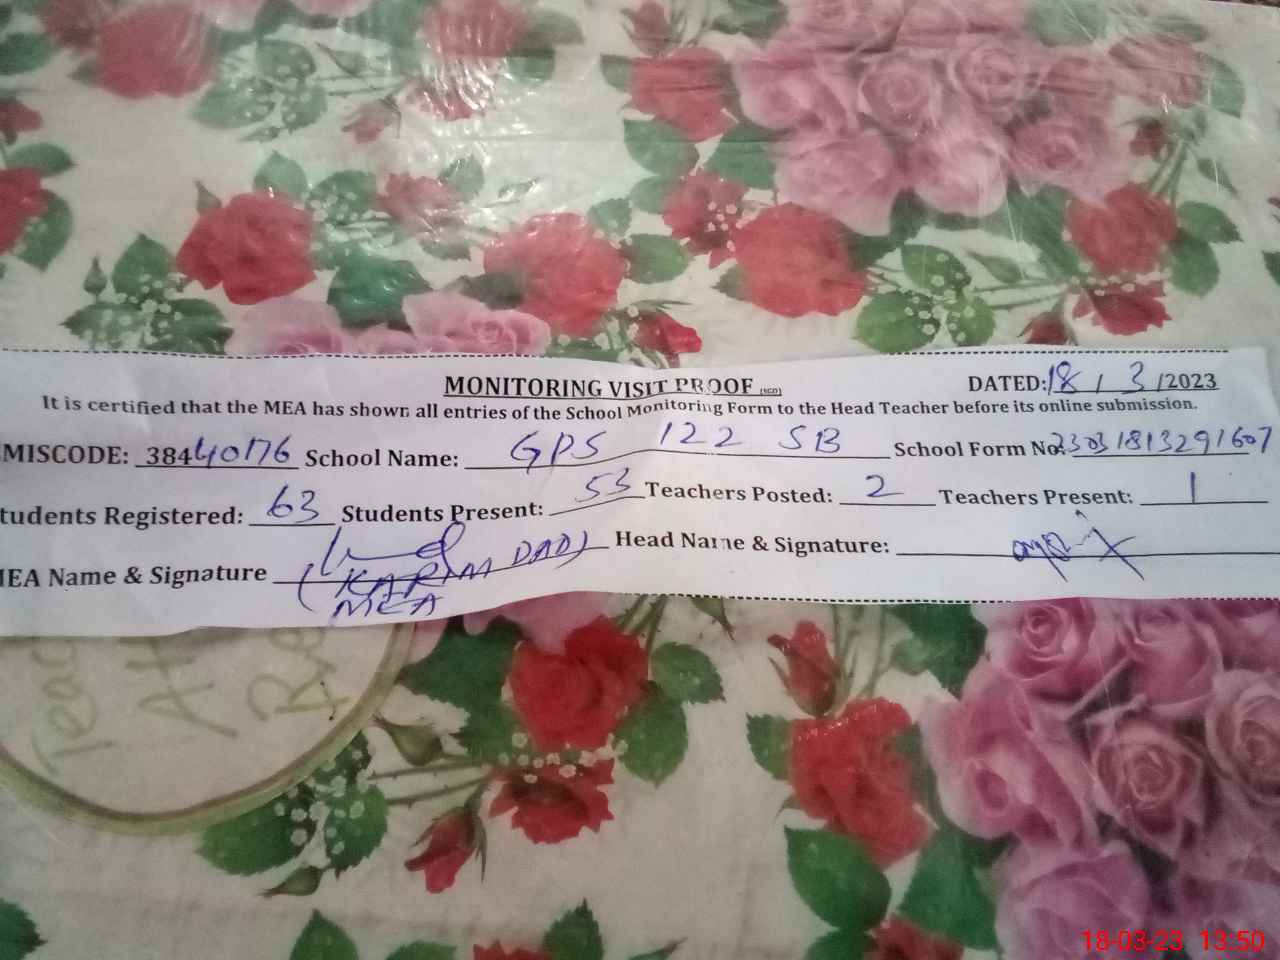 MONITORING VISIT PROOF (SGD) DATED: 18 / 3 /2023
It is certified that the MEA has shown all entries of the School Monitoring Form to the Head Teacher before its online submission.
MISCODE: 38440176 School Name: GPS 122 SB School Form No: 23031813291607
tudents Registered: 63 Students Present: 53 Teachers Posted: 2 Teachers Present: 1
MEA Name & Signature (KARIM DAD) Head Name & Signature:
MEA
18-03-23 13:50